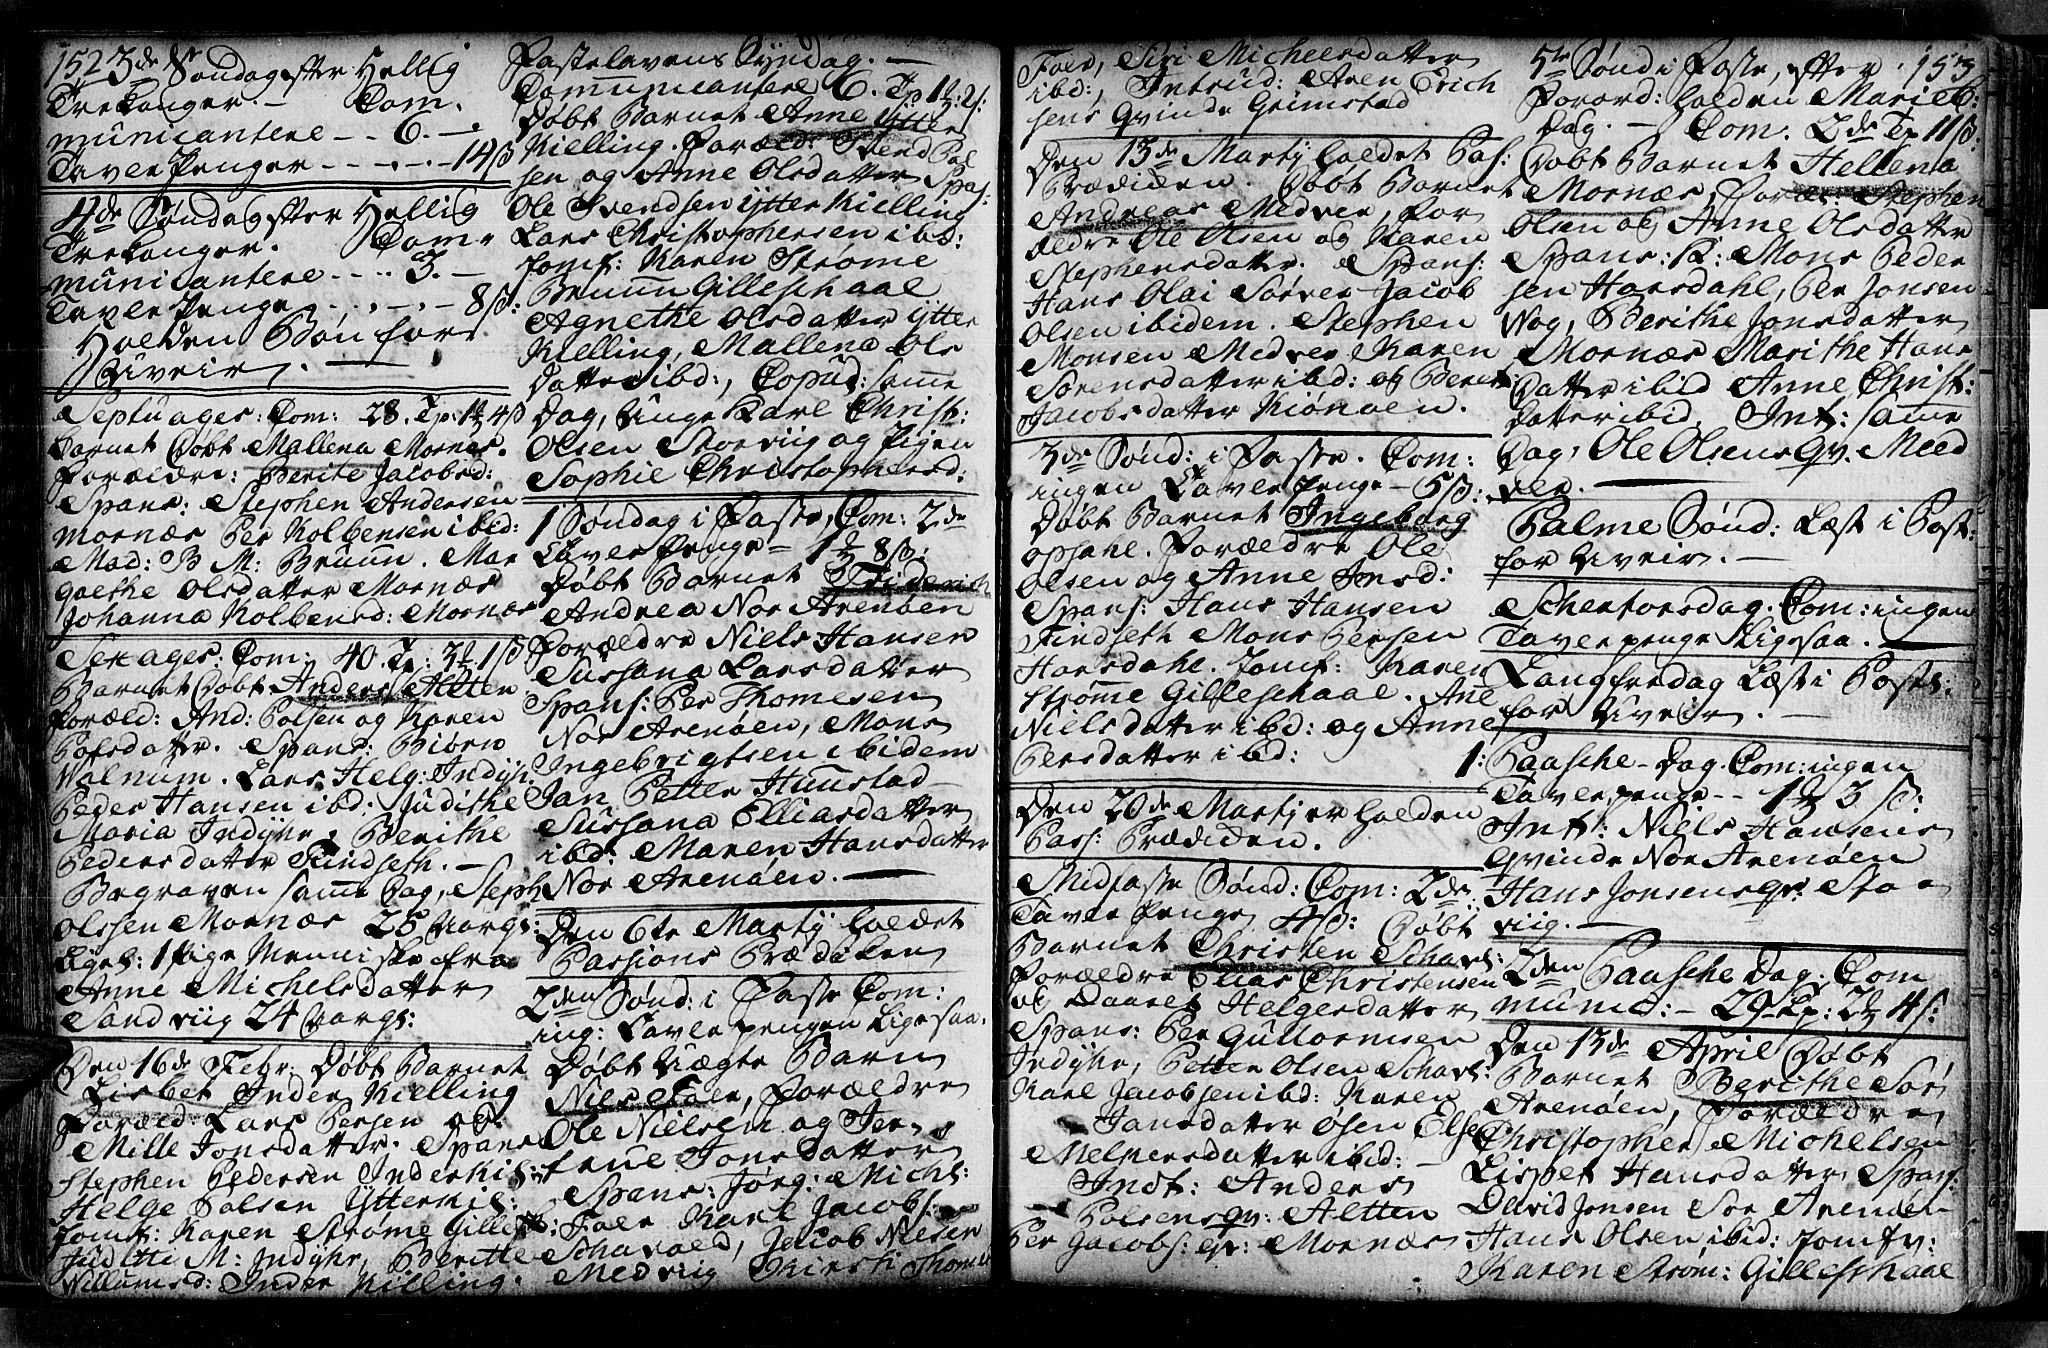 152 3de Søndag efter Hellig
Trekonger. - Com.
municantere - - 6. -
Tavle Penger - - - - 14 ß
4de Søndag efter Hellig
Trekonger. Com
municantere - - - 3. -
Tavle Penge - - - - 8 ß:
Holden Bøn for
Uveir. -
Septuages: Com: 28. Tp: 1 4 ß
Barnet Døbt Mallena Mornæs.
Forældre: Berite Jacobsd:
Spans: Stephen Andersen
Mornæs Per Kolbensen ibid:
Mad: B M: Bruun. Mar
grethe Olsdatter Mornæs
Johanna Kolbensd: Mornæs
Sexages: Com: 40. Tp: 3 1 ß
Barnet Døbt Anders Alten
Foræld: And: Polsen og Karen
Polsdatter. Spans: Biørn
Valnum. Lars Helg: Indijhr
Peder Hansen ibd: Judithe
Maria Indijhr, Berithe
Pedersdatter Findseth. -
Begraven samme Dag, Steph
Olssen Mornæs 25 Aargl:
Ligel: 1 Pige Menniske fra
Anne Michelsdatter
Sandviig 24 Aargl:
Den 16de Febr: Døbt Barnet
Lisbet Inder Kielling
Foræld: Lars Persen og
Mille Jonsdatter. Spans
Stephen Pedersen Inderkil:
Helge Polsen Ytterkil:
Jomf: Karen Strøme Gillesch:
Juditte M: Indijhr, Beritte
Willumsd: Inder Killing.
Fastelavens Syndag. -
Communicantere 6. Tp 1: 2 ß:
Døbt Barnet Anne Ytter
Kielling. Foræld: Svend Pol
sen og Anne Olsdatter Spas:
Ole Svendsen ytter Kielling
Lars Christophersen ibd:
Jomf: Karen Strøme
Bruun Gilleschaal
Agnethe Olsdatter ytter
Kielling, Mallena Ols
datter ibd:, Copul: samme
Dag, Unge Karl Christ:
Olsen Storviig og Pigen
Sophie Christophersd:
1 Søndag i Faste, Com: 2de
Tavle Penge = 1 8 ß:
Døbt Barnet Friderich
Andrea Nor Arenøen
Forældre Niels Hansen
Sussana Larsdatter
Spans: Per Thomesen
Nor Arenøen, Mons
Ingebrigtsen ibidem
Jan Petter Hunstad
Sussana Elliasdatter
ibd: Maren Hansdatter
Nor Arenøen. -
Den 6te Martij holdet
Passions Prædiken
2den Sønd: i Faste Com:
ing: Tavle pengen Ligesaa.
Døbt Uægte Barn
Niels Foer, Forældre
Ole Nielsen og Jer-
Jonsdatter
Spans: Jørg: Michl:
Foer Karl Jacobs:
Jacob Nielsen
Medviig Kirsti Thom
Foer, Siri Micheelsdatter
ibd:, Introd: Aren Erich
sens Qvinde Grimstad
Den 13de Martij holdet Pas:
Prædicken. Døbt Barnet
Andreas Medver, For
ældre Ole Olsen og Karen
Stephensdatter. Spans:
Hans Olai Sørver Jacob
Olsen ibidem. Stephen
Monsen Medver Karen
Sørensdatter ibd: og Beret
Jacobsdatter Kiønøen.
3de Sønd: i Faste. Com:
ingen Tavle Penge - 5 ß:
Døbt Barnet Ingeborg
opsahl. Forældre Ole
Olsen og Anne Jonsd:
Spans: Hans Hansen
Findseth Mons Persen
Harsdahl. Jomf: Karen
Strømme Gilleschaal. Ane
Nielsdatter ibd: og Anne
Persdatter ibd: 1:
Den 20de Martij er holden
Pass: Prædicken.
Midfaste Sønd: Com: 2de
Tavle Penge 4 ß: Døbt
Barnet Christen
Forældre Elias Christensen
og Helgesdatter
Spans: Per Guttormsen
Indijhr, Petter Olsen
Karl Jacobsen ibd: Karen
Jansdatter Øsen Else
ibd: -
Indt: Anders
Polsens qv: Altten
Per Jacobs: qv: Mornæs
5te Sønd i Faste, efter 153
Forord: holden Marie B:
Dag. - Com. 2de Tp 11 ß:
Døbt Barnet Hellena
Mornæs, Foræl: Stephen
Olsen og Anne Olsdatter
Spans: Mons Peder
sen Harsdahl, Per Jonsen
Vog, Berithe Jonsdatter
Mornæs Marithe Hans
Datter ibid Anne Christ:
Datter ibid, Int: samme
Dag, Ole Olsens Qv. Meed
ver. -
Palme Sønd: Læst i Post:
for Uveir. -
Schertorsdag. Com: ingen
Tavle penge Ligesaa. -
Langfredag Læst i Posts:
for Uveir. -
Paasche-Dag. Com: ingen
Tavle penge - - 1 3 ß:
Int: Niels Hansens
Qvinde Nor Arenøen
Hans Jonsens qv: Sto
viig. -
2den Paasche Dag: Com
munic: - 29 Tp: 2 4 ß:
Den 13de April Døbt
Barnet Berithe Sør
Arenøen, Forældre
Christopher Michelsen
Lispet Hansdatter Spans:
David Jonsen Sør Arenøen
Hans Olsen ibid: Jomfr:
Karen Strøm: Gilleschaal